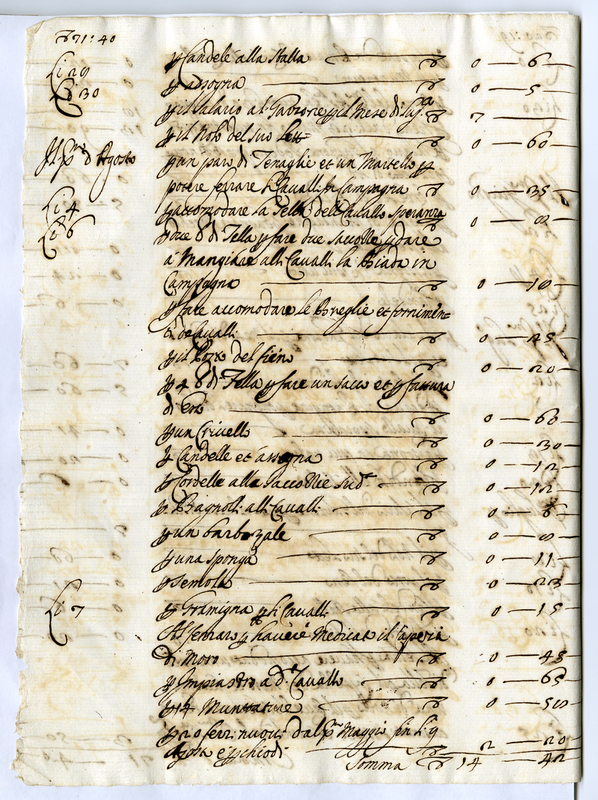 71:40
Li 29 p Candele alla stalla 0 — 6
Li 30 p assogna 0 — 5
p il salario al Gabrorie p il Mese di Lug.º 7 —
p il del suo Lett 0 — 60
Il p.mo d Agosto p un paro di Tenaglie et un Martello p
potere ferrare li Cavalli in Campagna 0 — 35
Li 4 p accomodare la Sella del Cavallo Speranza 0 — 8
Li 6 p due di Tella p fare due saccolle p dare
a Mangiare alli Cavalli la Biada in
Campagna 0 — 10
p fare accomodare le Breglie et fornimen=
ti de Cavalli 0 — 45
p il Porto del fieno 0 — 20
p 4 di Tella p fare un sacco et p fattura
di esso 0 — 60
p un Crivello 0 — 30
p Candelle et assogna 0 — 12
p Cordelle alla saccollie sud.e 0 — 12
p Bagnoli alli Cavalli 0 — 6
p un barbozale 0 — 8
p una sponga 0 — 11
p semola 0 — 23
Li 7 p Gramigna p li Cavalli 0 — 15
Al ferraro p havere Medicato il
di Moro 0 — 45
p Impiastro a d.º Cavallo 0 — 65
p 14 0 — 50
p 20 ferri nuovi dal p.º Maggio fin li 9
Agosto e p chiodi 2 — 20
Somma 14 — 42